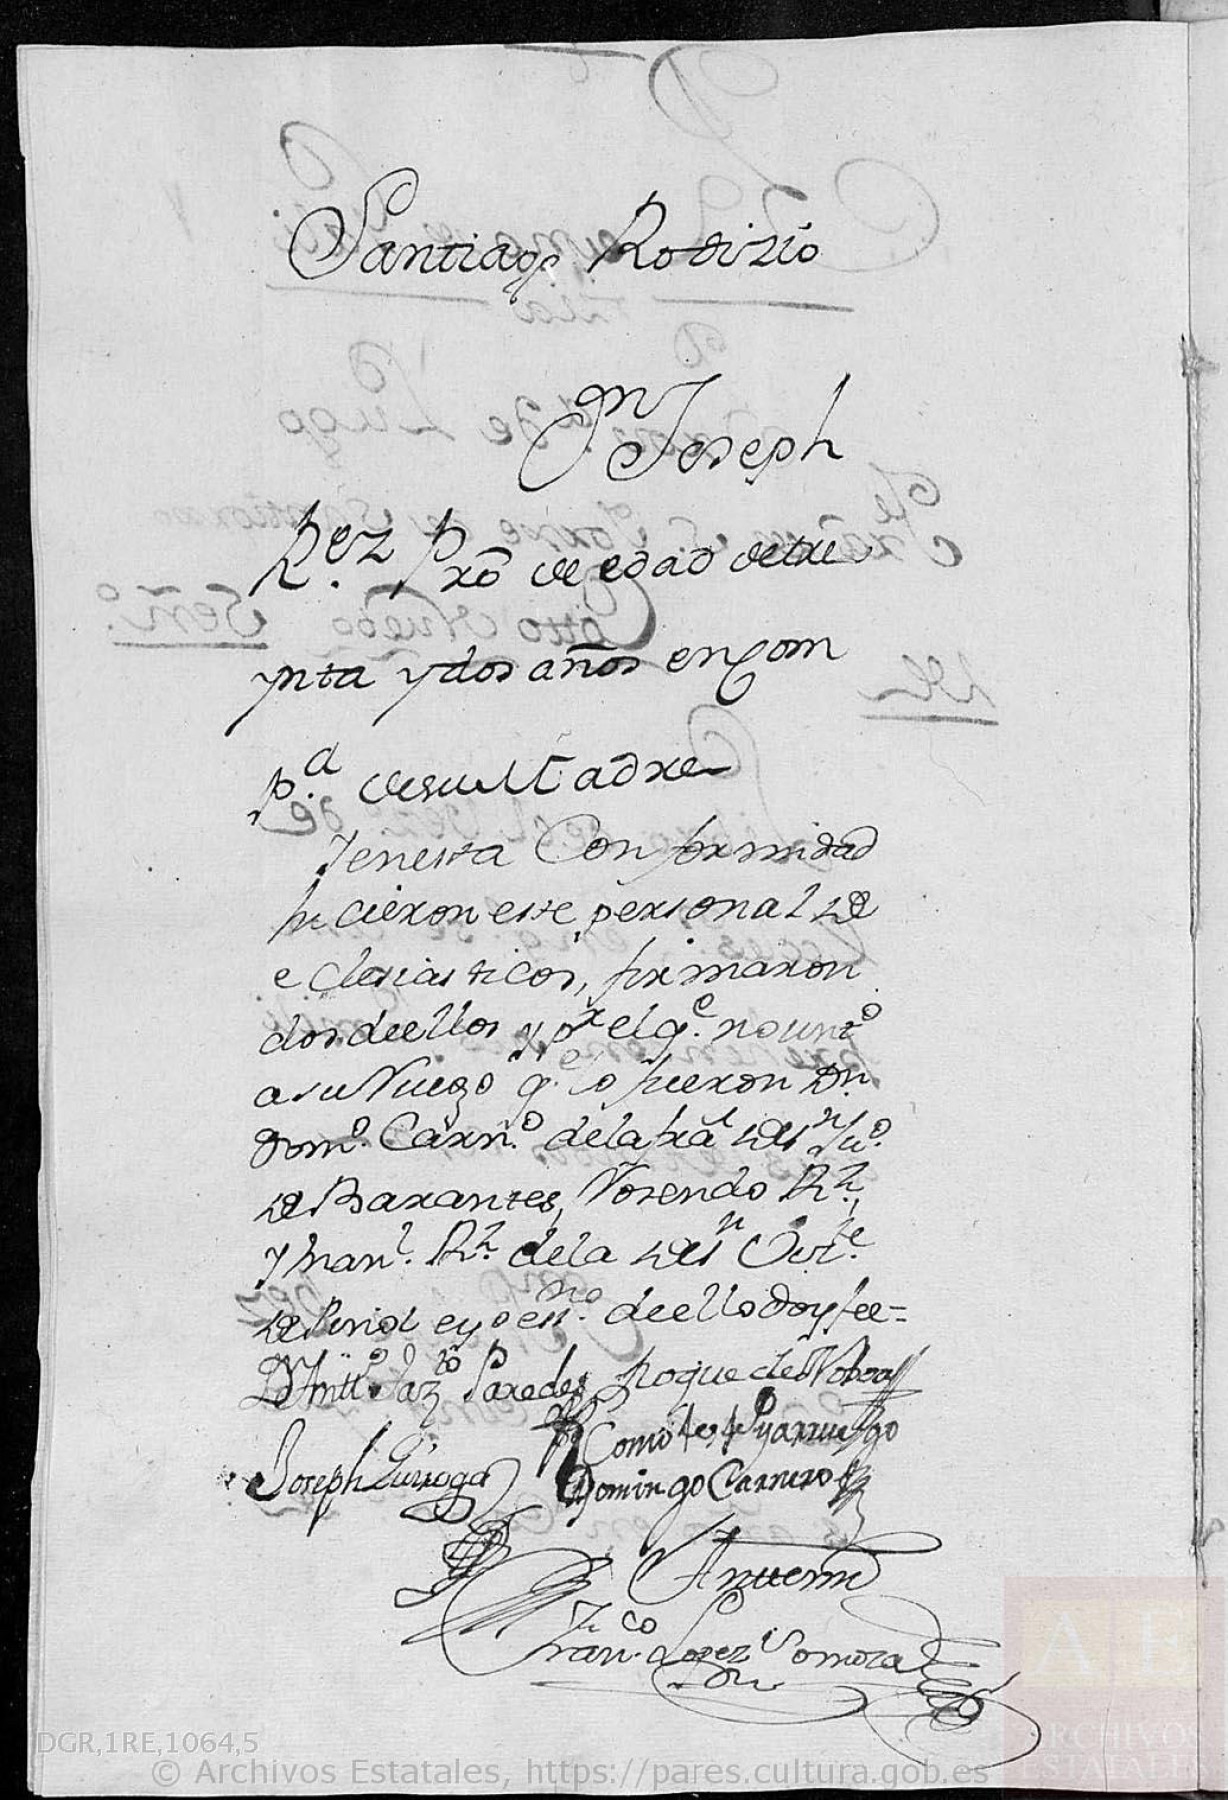 Santiago Rodizio
Dn Joseph
Rez Pro de edad de tre
ynta y dos años en Com
pa. de su Madre
Y en esta Conformidad
hicieron este personal de
eclesiasticos, firmaron
dos de ellos y pr el qe. no un to.
a su Ruego qe. lo fueron Dn
Domo. Carno. de la fra de Sn Juo.
de Barantes, Rosendo Rz.,
y Manl. Rz. de la de Sn Vizte.
de Pinol e yo esno. de ello doy fee =
Paredes Roque de Noboa
Como tesgo y a rruego
Joseph Quiroga Domingo Carnero
Antte mi
Franco. Lopez Somoza
DGR,1RE,1064,5
© Archivos Estatales, https://pares.cultura.gob.es
AE
ARCHIVOS
ESTATALES